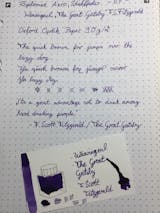 Weinrotgold, The Great Gatsby, F. Fitzgerald
Oxford Optik Paper 90g/m2
The quick brown fox jumps over the
lazy dog.
The quick brown fox jumps over
the lazy dog.
It's a great advantage not to drink among
hard drinking people.
- F. Scott Fitzgerald / The Great Gatsby
The Great
Gatsby
F. Scott
Fitzgerald